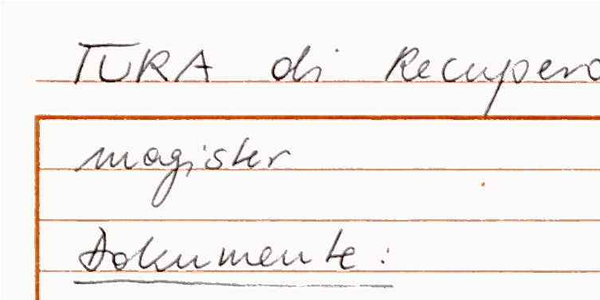 TURA di Recupero
magister
Dokumente: